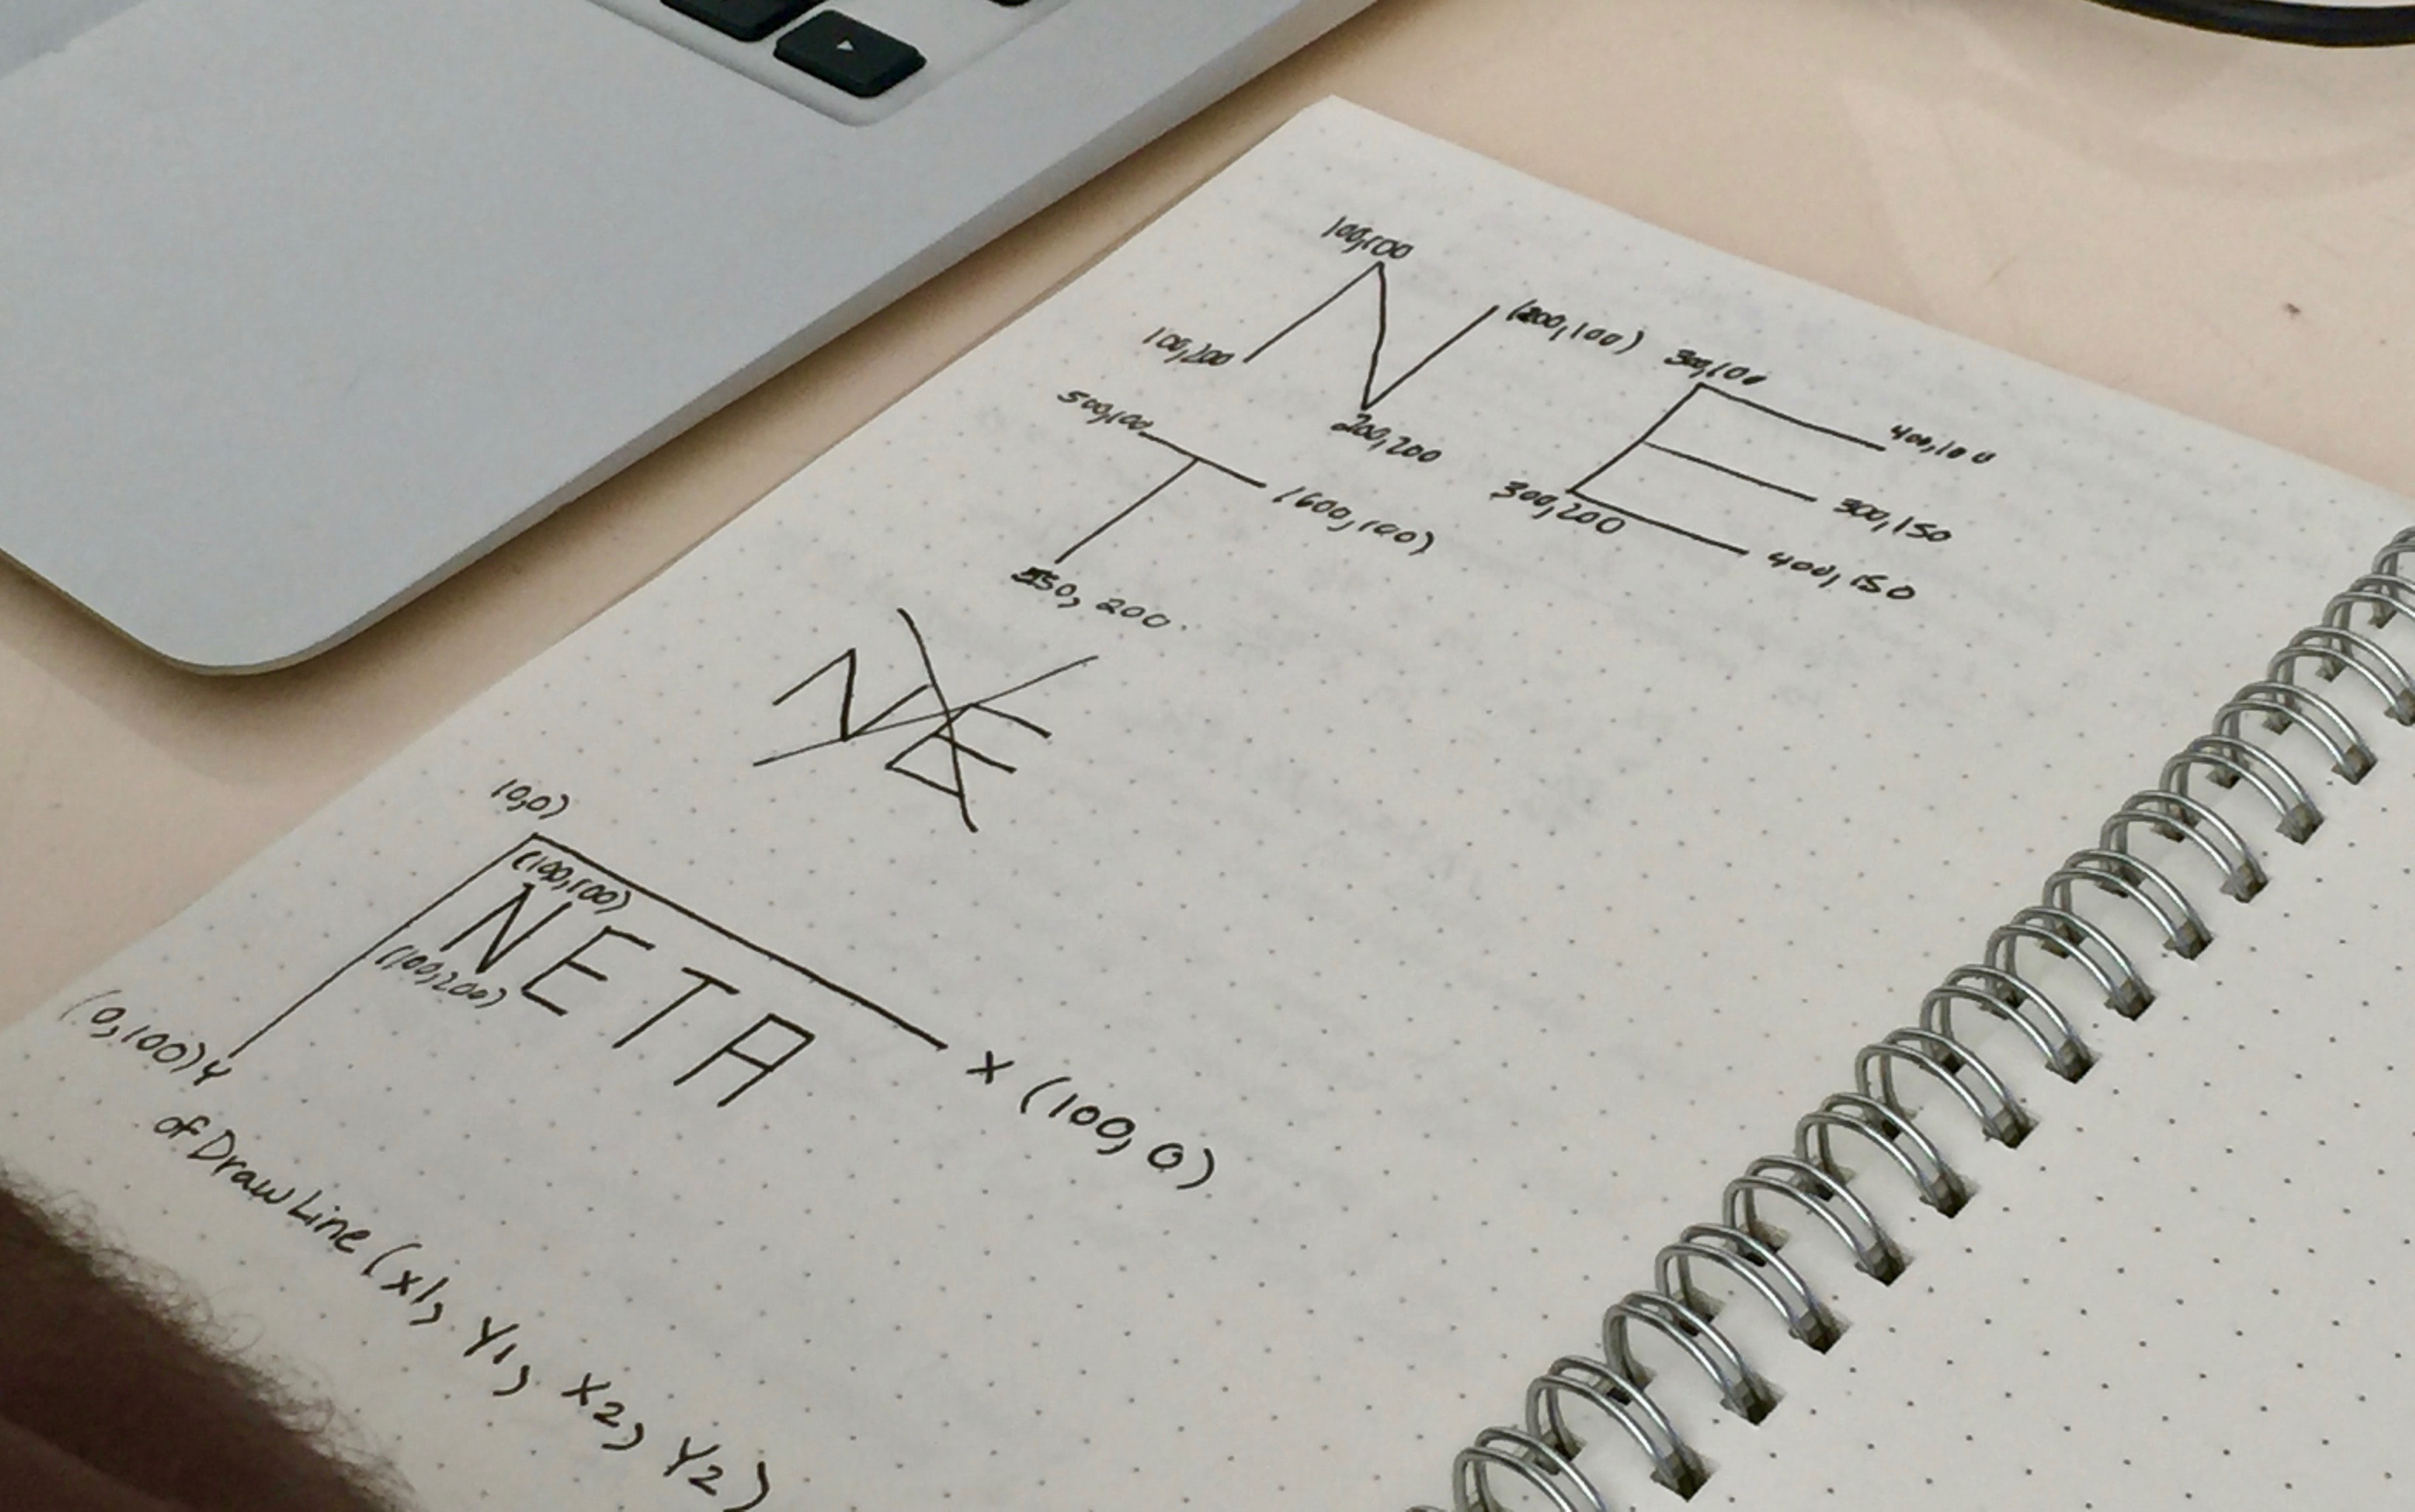 100,100
(200,100)
100,200
200,200
300,100
400,100
300,150
300,200
400,150
500,100
(600,100)
550, 200
NE
(0,0)
(100,100)
NETA
(100,200)
(0,100) Y
X (100, 0)
ofDrawLine (x1, Y1, X2, Y2)